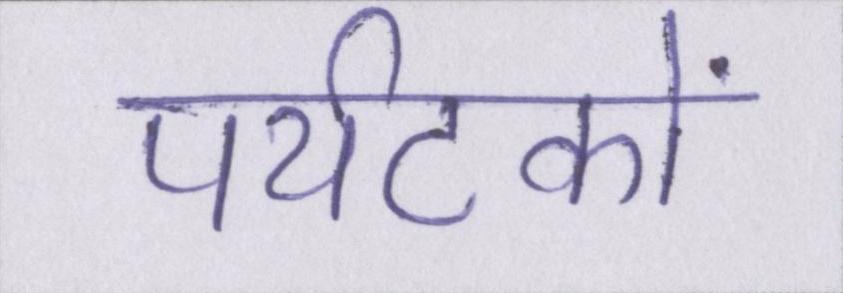 पर्यटकों